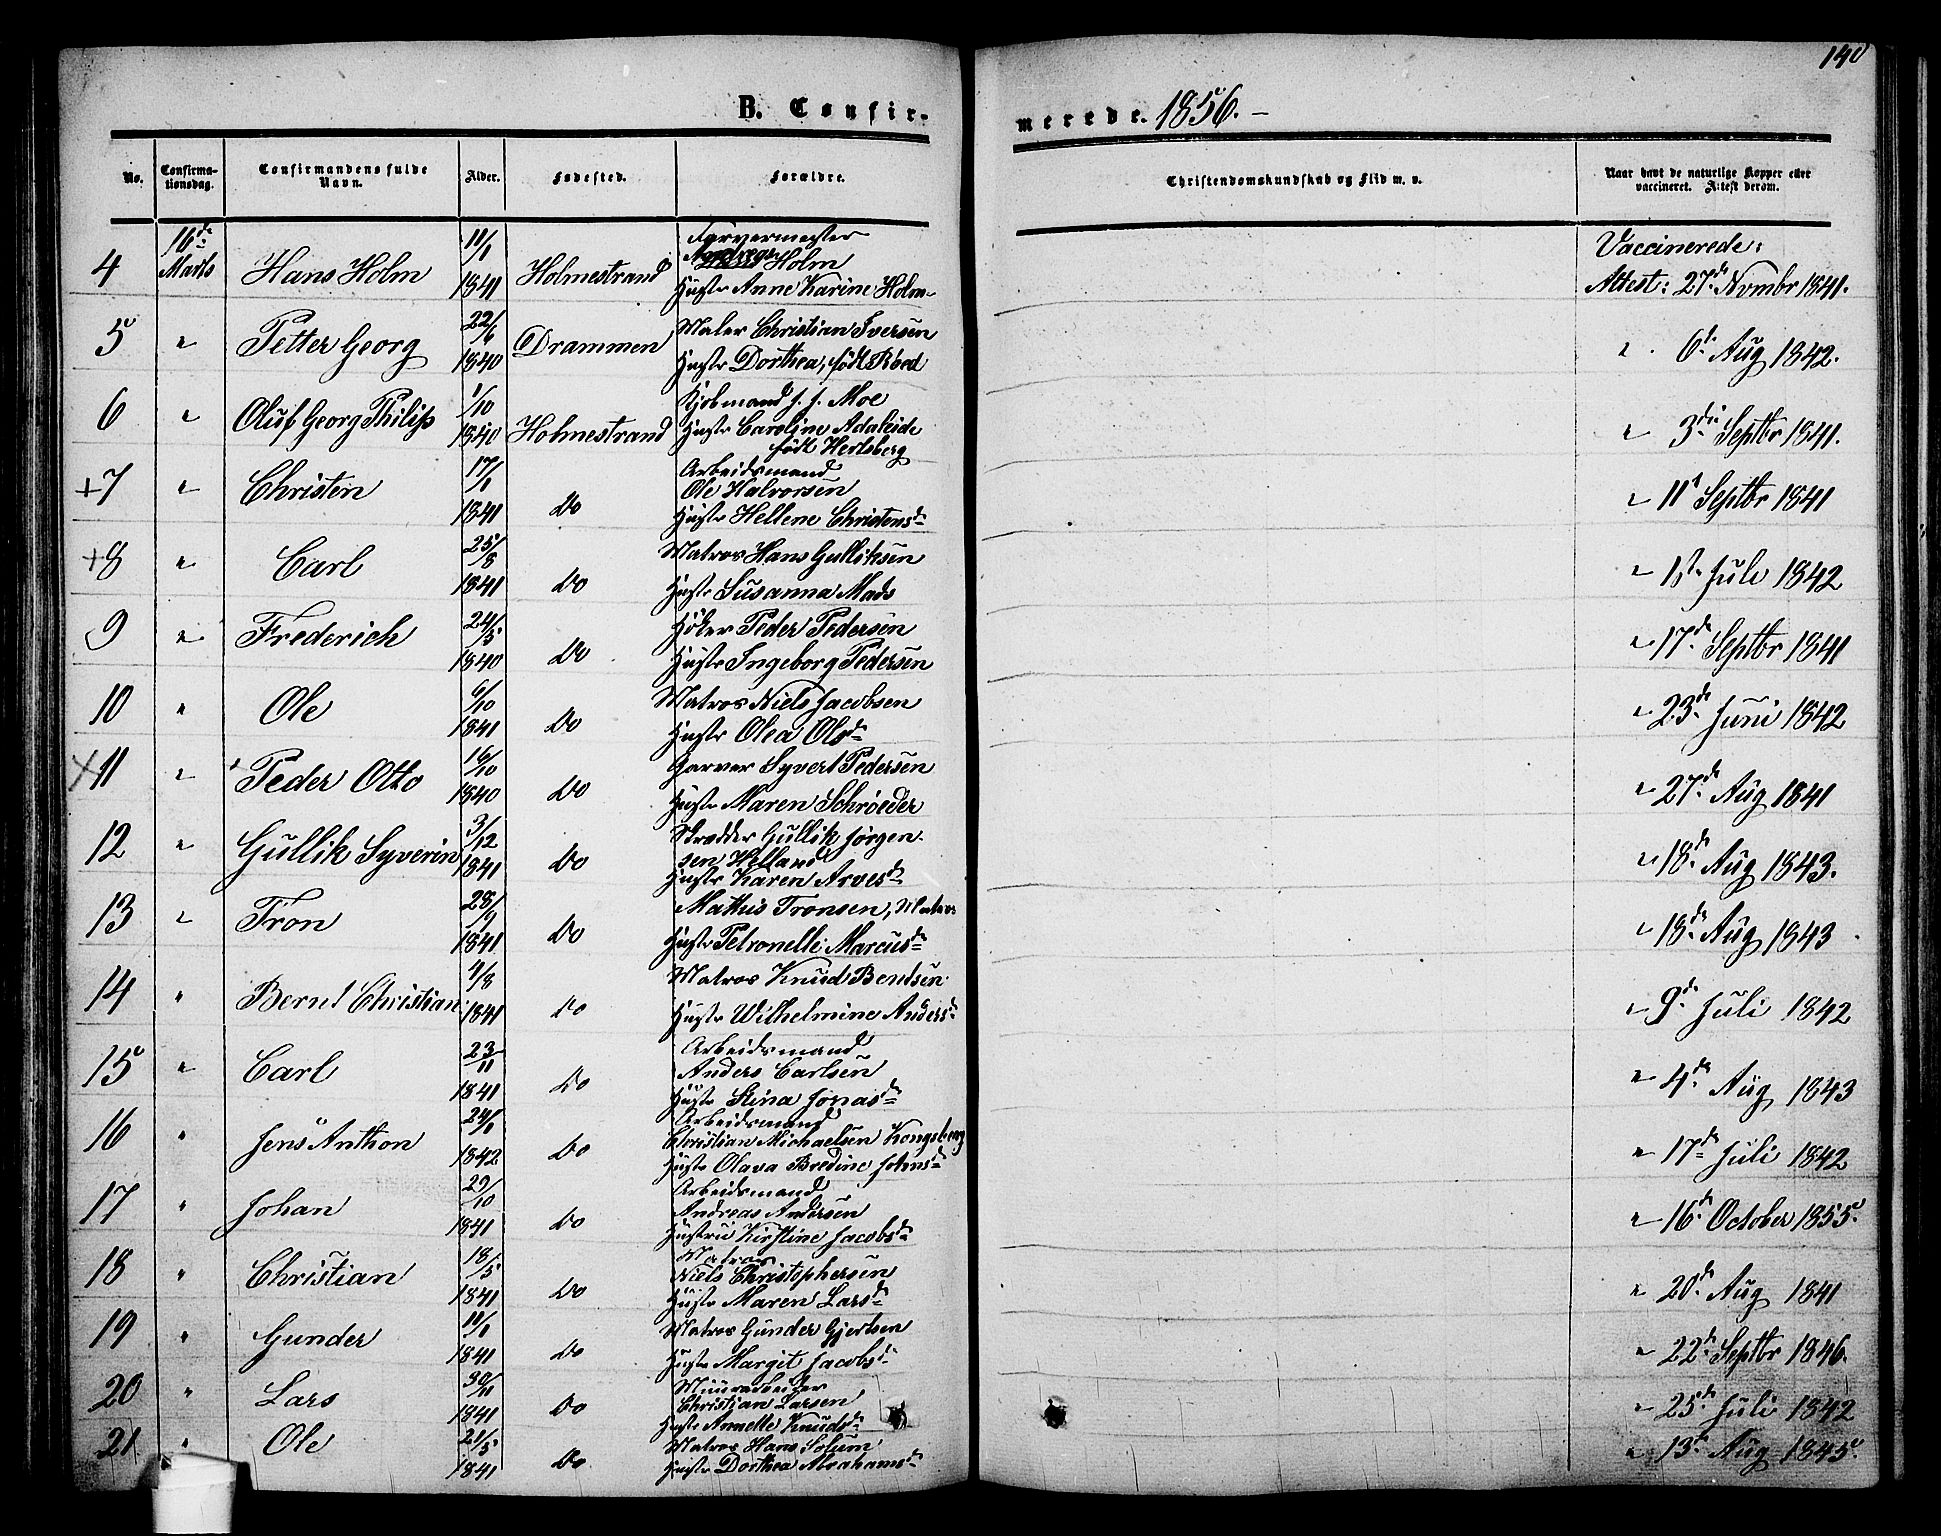 140
B. Confir-
merede. 1856. -
No.
Confirma-
tionsdag.
Confirmandens fulde
Navn.
Alder.
Fødested.
Forældre.
Christendomskundskab og Flid m. v.
Naar havt de naturlige Kopper eller
vaccineret. Attest derom.
4 16de Marts Hans Holm 11/1 1841 Holmestrand
Farvermester
Holm
Hustr Anne Karine Holm
Vaccinerede:
Attest: 27de Nvmbr 1841.
5 " Petter Georg 22/6 1840 Drammen
Maler Christian Iversen
Hustr Dorthea, født Roed
" 6te Aug 1842.
6 " Oluf Georg Philip 1/10 1840 Holmestrand
Kjøbmand J. J. Moe
Hustr Caroline Adaleide
født Hertsberg
" 3die Septbr 1841.
+7 " Christen 17/1 1841 Do
Arbeidsmand
Ole Halvorsen
Hustr Hellene Christensd
" 11t Septbr 1841
+8 " Carl 25/8 1841 Do
Matros Hans Gulliksen
Hustr Susanna Mads
" 1ste Juli 1842
9 " Frederich 24/5 1840 Do
Høker Peder Pedersen
Hustr Ingeborg Pedersen
" 17de Septbr 1841
10 " Ole 6/10 1841 Do
Matros Niels Jacobsen
Hustr Olea Olsd
" 23de Juni 1842
+11 " Peder Otto 16/10 1840 Do
Garver Syvert Pedersen
Hustr Maren Schrøeder
" 27de Aug 1841
12 " Gullik Syverin 3/12 1841 Do
Skrædder Gullik Jørgen-
sen Helland
Hustr Karen Arvesd
" 18de Aug 1843.
13 " Tron 28/9 1841 Do
Mathis Tronsen, Matros
Hustr Petronelle Marcusd
" 18de Aug 1843
14 " Bernt Christian 4/8 1841 Do
Matros Knud Bentsen
Hustr Wilhelmine Andersd
" 9de Juli 1842
15 " Carl 23/11 1841 Do
Arbeidsmand
Anders Carlsen
Hustr Stina Jonasd
" 4de Aug 1843
16 " Jens Anthon 24/1 1842 Do
Arbeidsmand
Christian Michaelsen Kongsberg
Hustr Olava Bredine Johnsd
" 17de Juli 1842
17 " Johan 29/10 1841 Do
Arbeidsmand
Andreas Andersen
Hustrue Kirstine Jacobsd
" 16de October 1855.
18 " Christian 18/5 1841 Do
Matros
Niels Christophersen
Hustr Maren Larsd
" 20de Aug 1841
19 " Gunder 11/1 1841 Do
Matros Gunder Gjertsen
Hustr Margit Jacobsd
" 22de Septbr 1846.
20 " Lars 30/11 1841 Do
Muurarbeider
Christian Larsen
Hustr Annette Knudsd
" 25de Juli 1842
21. " Ole 21/5 1841 Do
Matros Hans Solum
Hustr Dorthea Abrahamsd
" 13de Aug 1845.